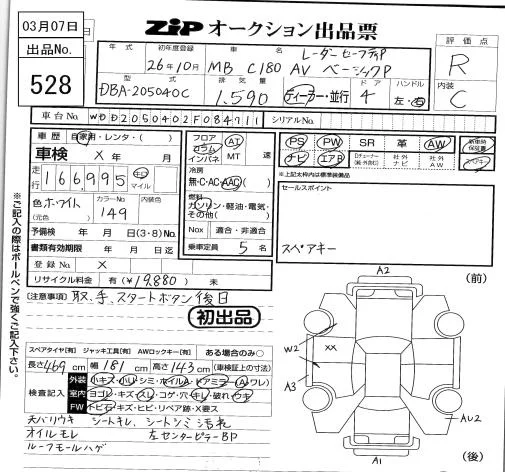 03月07日
出品No.
528
ZIP オークション出品票
評価点
R
内装
C
年式 初年度登録 車名
26年10月 MB C180 レーダーセーフティP
AV ベーシックP
型式 排気量 ドア ハンドル
DBA-205040C 1,590 ディーラー・並行 4 左・右
車台No. WDD2050402F084711 シリアルNo.
車歴 自家用・レンタ・( )
車検 X 年 月
走行 166,995 キロ マイル
色 ホ-アイト カラーNo 149 内装色
(元色)
予備検 年 月 日(3・8)No.
書類有効期限 年 月 日迄
登録No. X
リサイクル料金 有(¥19,880) 無
フロア コラム インパネ AT MT 速
冷房
無・C・AC・AAC( )
燃料
ガソリン・軽油・電気・その他( )
Nox 適合・非適合
乗車定員 5 名
PS PW SR 革 AW 新車時保証書
ナビ エアB Dチューナー 社外ナビ 社外AW スペアキー
※上記太枠内は標準装備品
セールスポイント
スペアキー
[注意事項] 取、手、スタートボタン後日
初出品
スペアタイヤ[有] ジャッキ工具[有] AWロックキー[有] ある場合のみ○
長さ469cm 幅181cm 高さ143cm(車検証上の寸法)
検査記入
外装 小キズ・凹・シミ・ホイル・ドアミラー(A ワレ)
室内 ヨゴレ・キズ・スレ・コゲ・穴・キレ・破れ・ウキ
FW トビ石・キズ・ヒビ・リペア跡・X要ス
天バリウキ シートキレ、シートシミ汚れ
オイルモレ 左センターピラーBP
ルーフモールハゲ
※ご記入の際はボールペンで強くご記入下さい。
A2
(前)
W2
XX
A3
AU2
A1
(後)